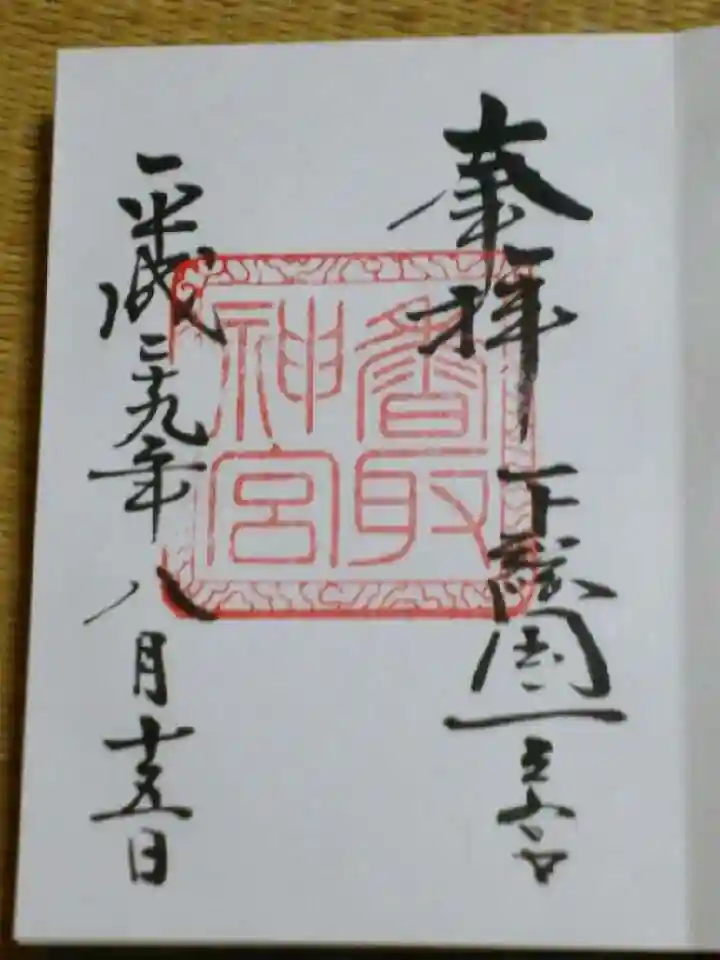 奉拝 下総国一之宮
香取
神宮
平成二十九年八月十五日